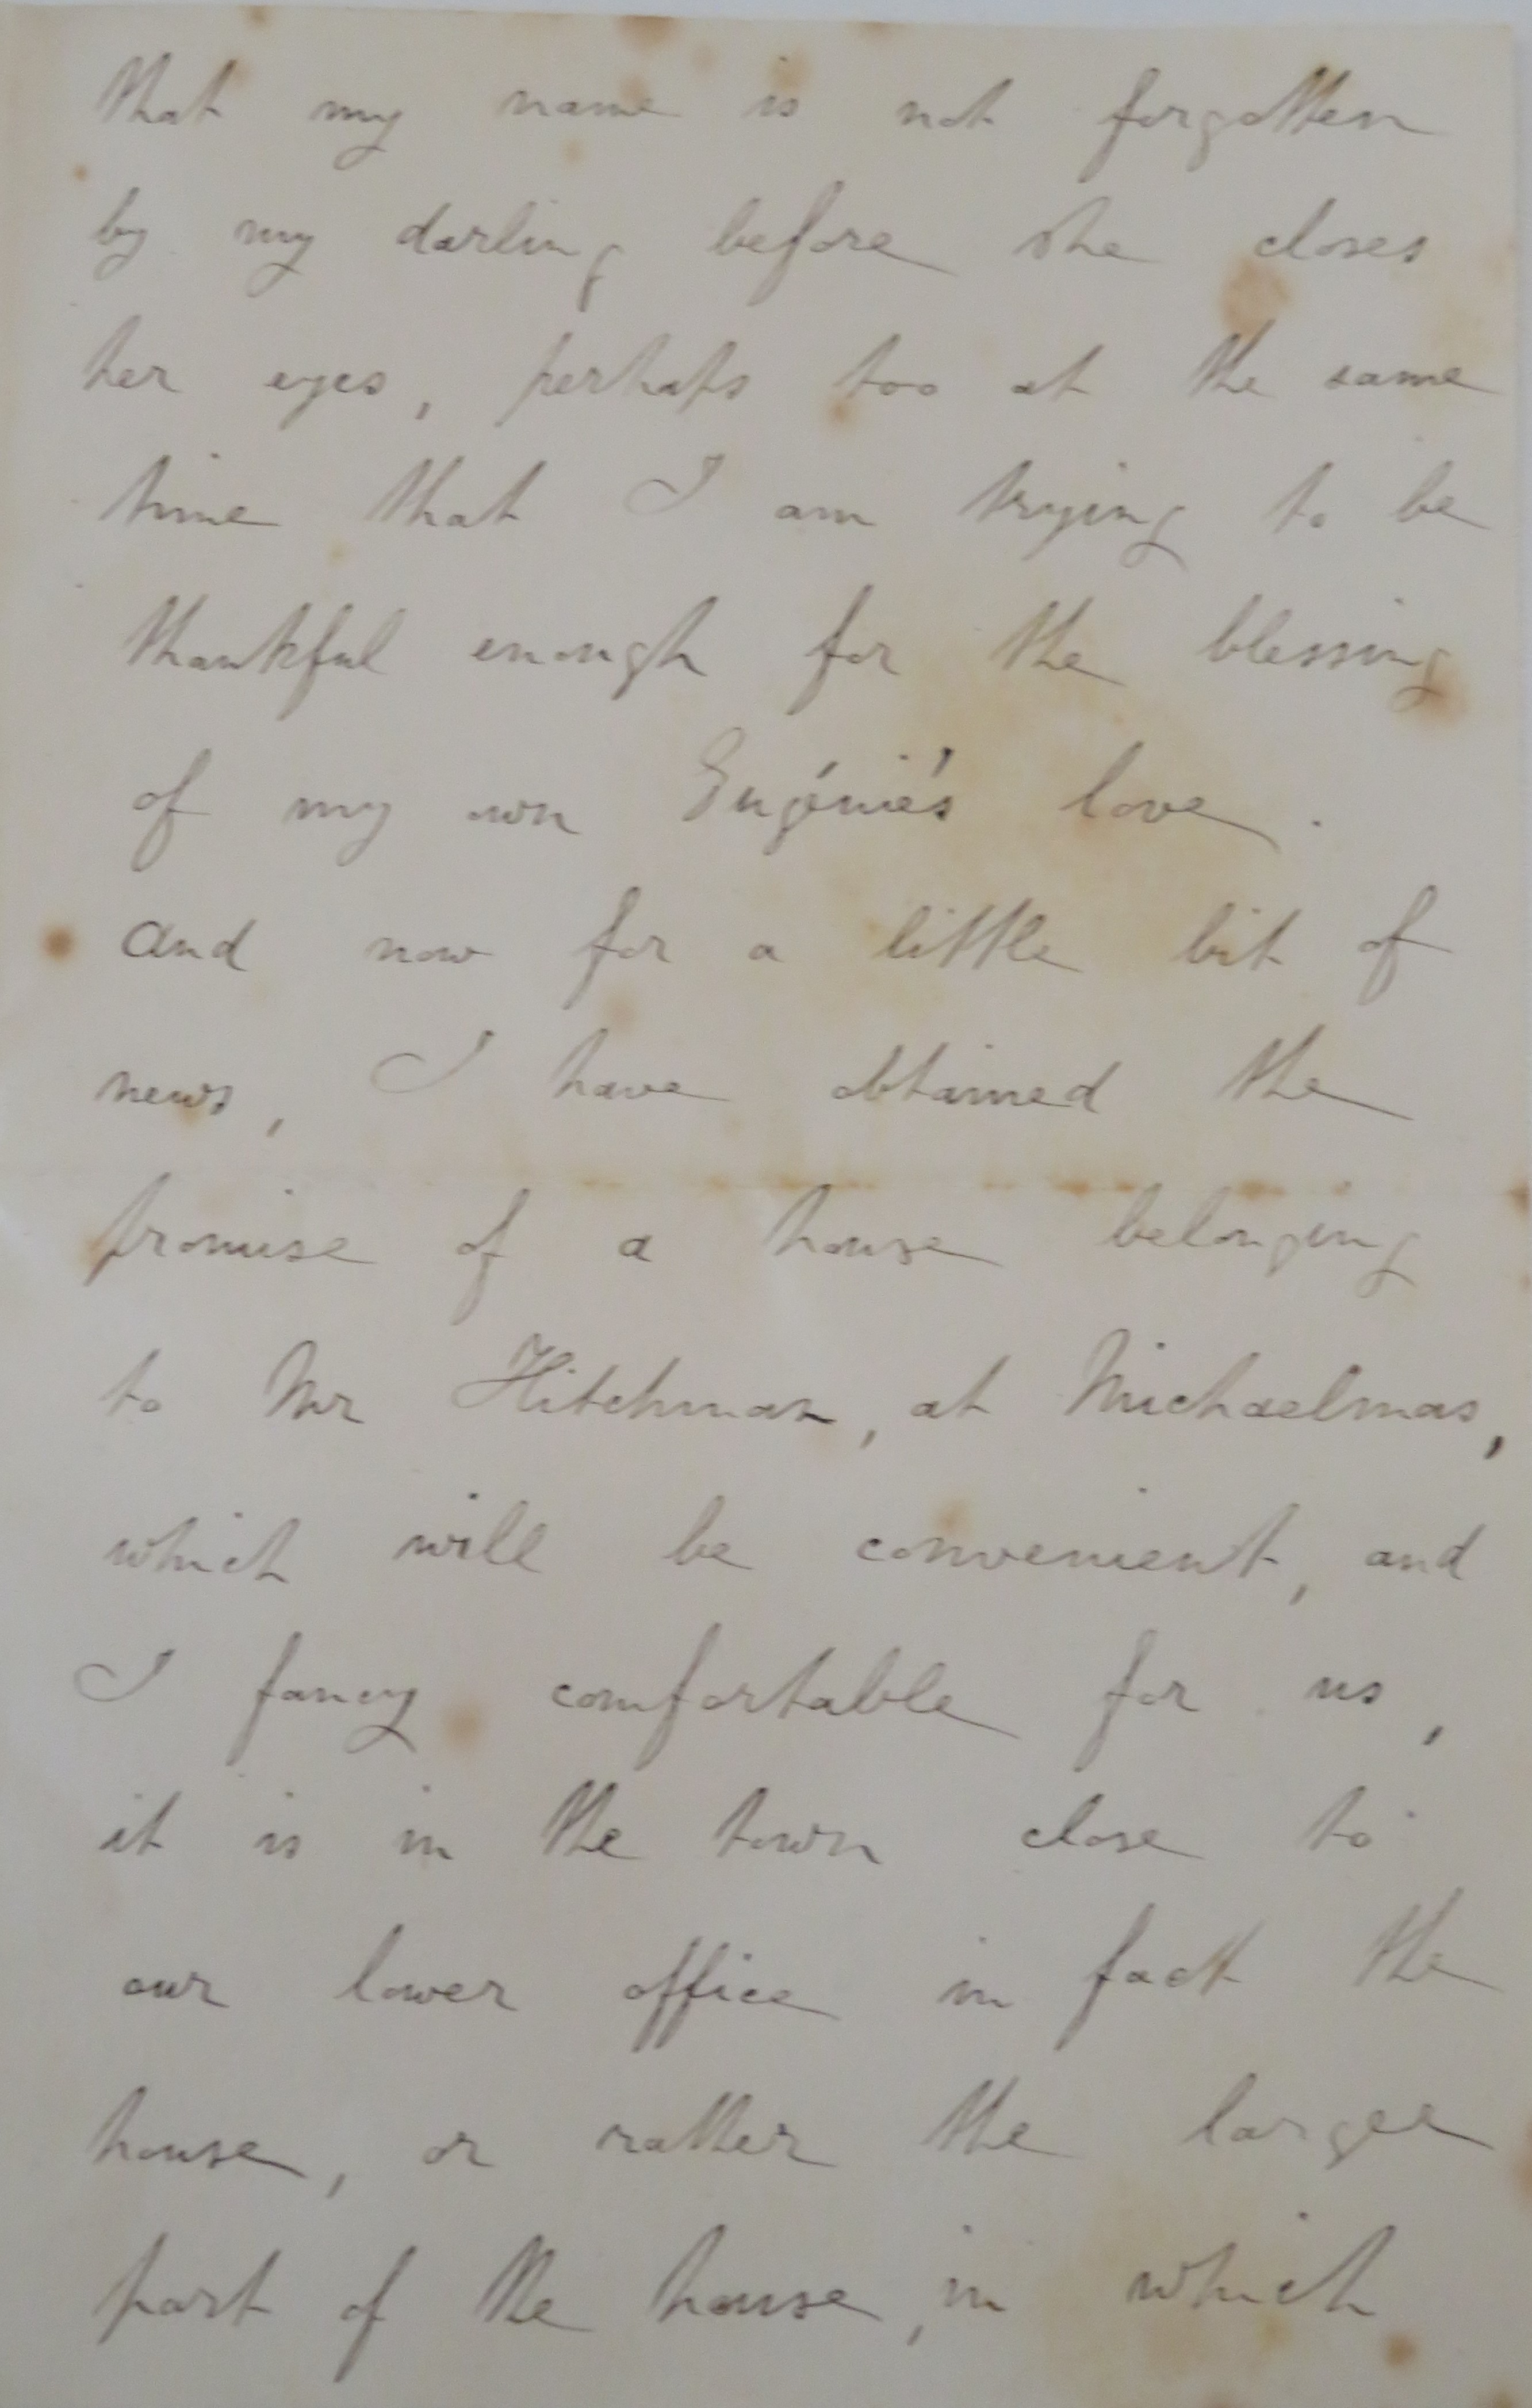 that my name is not forgotten
by my darling before she closes
her eyes, perhaps too at the same
time that I am trying to be
thankful enough for the blessing
of my own Eugénie's love.
And now for a little bit of
news, I have obtained the
promise of a house belonging
to Mr Hitchman, at Michaelmas,
which will be convenient, and
I fancy comfortable for us,
it is in the town close to
our lower office in fact the
house, or rather the larger
part of the house, in which